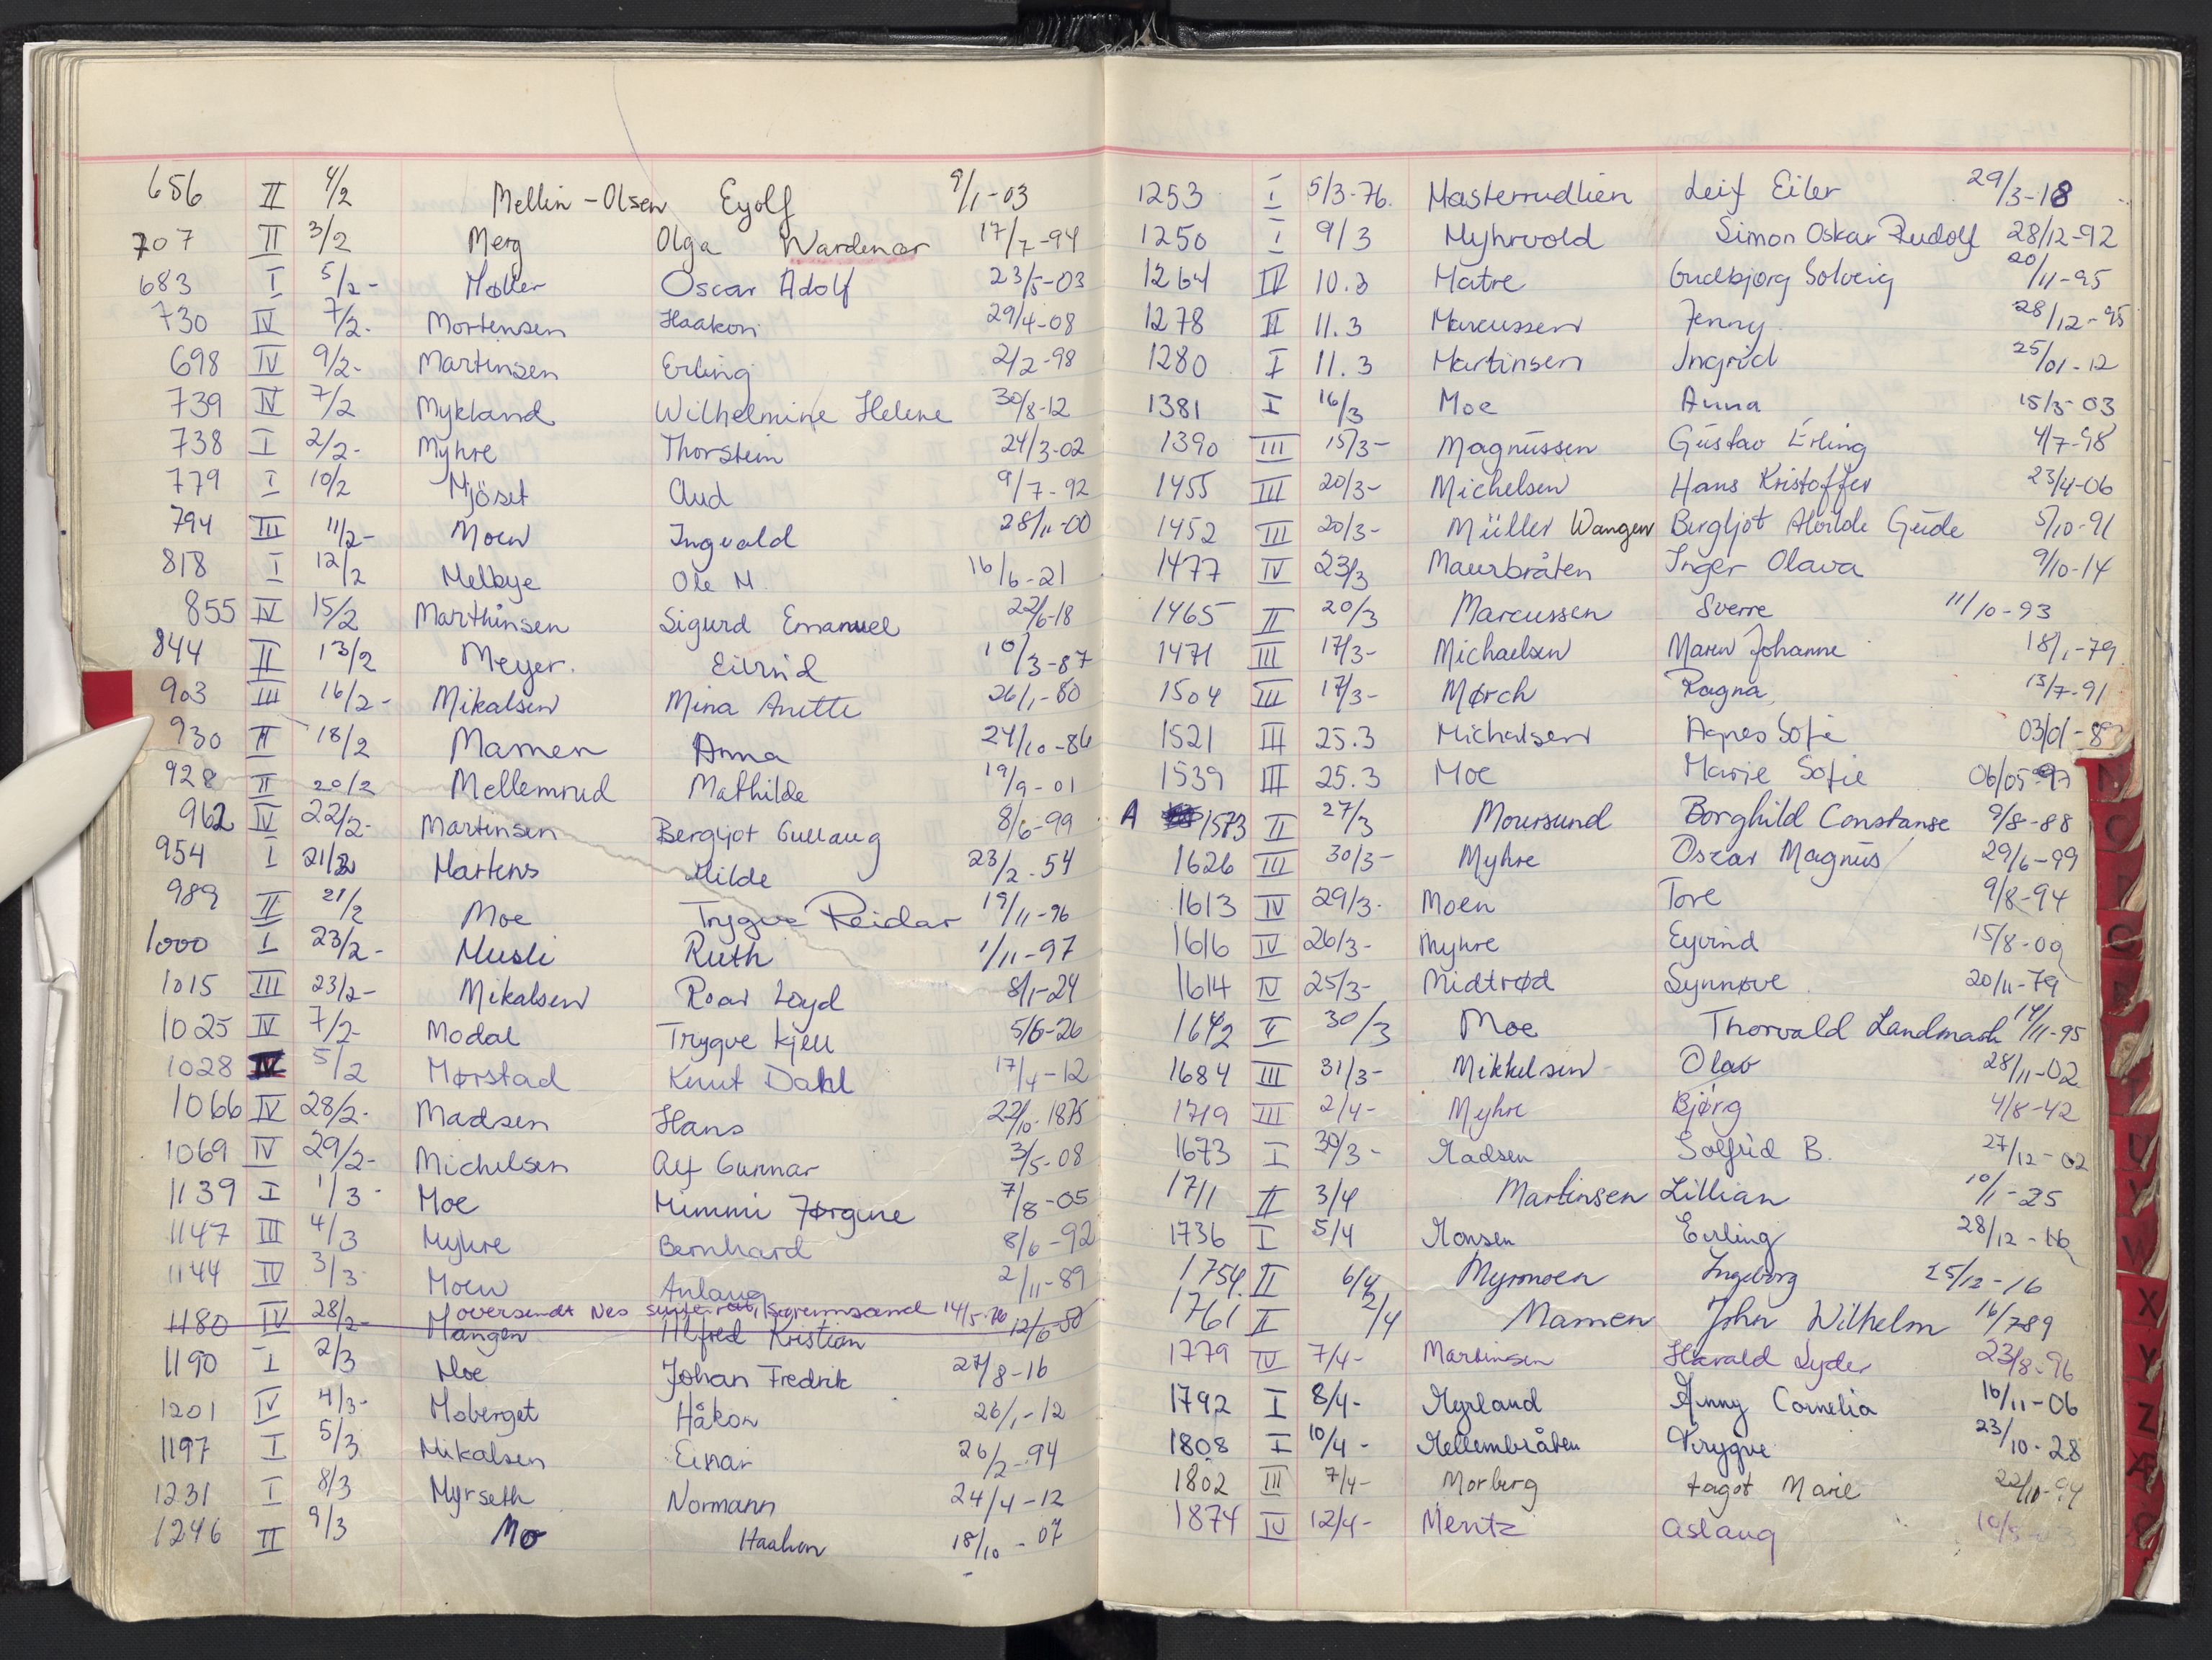 656 II 4/2 Mellin-Olsen Eyolf 9/1-03
707 II 3/2 Merg Olga Wardenar 17/7-94
683 I 5/2- Møller Oscar Adolf 23/5-03
730 IV 7/2- Mortensen Haakon 29/4-08
698 IV 9/2- Martinsen Erling 2/2-98
739 IV 7/2 Mykland Wilhelmine Helene 30/8-12
738 I 2/2- Myhre Thorstein 24/3-02
779 I 10/2 Mjöset Aud 9/7-92
794 III 11/2- Moen Ingvald 28/11-00
818 I 12/2 Melbye Ole M. 16/6-21
855 IV 15/2 Marthinsen Sigurd Emanuel 22/6-18
844 II 13/2 Meyer. Eivind 10/3-87
903 III 16/2- Mikalsen Mina Anette 26/1-80
930 II 18/2 Mamen Anna 24/10-86
928 II 20/2 Mellemrud Mathilde 19/9-01
962 IV 22/2- Martinsen Bergljot Gullaug 8/6-99
954 I 21/2 Martens Hilde 23/2-54
989 II 21/2 Moe Trygve Reidar 19/11-96
1000 I 23/2- Musli Ruth 1/11-97
1015 III 23/2- Mikalsen Roar Loyd 8/1-24
1025 IV 7/2- Modal Trygve Kjell 5/6-26
1028 IV 5/2 Mørstad Knut Dahl 17/4-12
1066 IV 28/2- Madsen Hans 22/10-1875
1069 IV 29/2- Michelsen Alf Gunnar 3/5-08
1139 I 1/3- Moe Mimmi Jørgine 7/8-05
1147 III 4/3 Myhre Bernhard 8/6-92
1144 IV 3/3 Moen Anlaug 2/11-89
oversendt Nes 14/5-76
1180 IV 28/2- Mangen Alfred Kristian 12/6-50
1190 I 2/3 Moe Johan Fredrik 27/8-16
1201 IV 4/3- Moberget Håkon 26/1-12
1197 I 5/3 Mikalsen Einar 26/2-94
1231 I 8/3 Myrseth Normann 24/4-12
1246 II 9/3 Mo Haakon 18/10-07
1253 I 5/3-76. Masterrudlien Leif Eiler 29/3-18
1250 I 9/3 Myhrvold Simon Oskar Rudolf 28/12-92
1264 IV 10.3 Matre Gudbjørg Solveig 20/11-95
1278 II 11.3 Marcussen Jenny 28/12-95
1280 I 11.3 Martinsen Ingrid 25/01-12
1381 I 16/3 Moe Anna 15/3-03
1390 III 15/3- Magnussen Gustav Erling 4/7-98
1455 III 20/3- Michelsen Hans Kristoffer 23/4-06
1452 III 20/3- Müller Wangen Bergljot Alvilde Gude 5/10-91
1477 IV 23/3 Maurbråten Inger Olava 9/10-14
1465 II 20/3 Marcussen Sverre 11/10-93
1471 III 17/3- Michaelsen Maren Johanne 18/1-79
1504 III 17/3- Mørch Ragna 13/7-91
1521 III 25.3 Michalsen Agnes Sofie 03/01-8
1539 III 25.3 Moe Marie Sofie 06/05-97
A 1573 II 27/3 Moursund Borghild Constanse 9/8-88
1626 III 30/3- Myhre Oscar Magnus 29/6-99
1613 IV 29/3- Moen Tore 9/8-94
1616 IV 26/3- Myhre Eyvind 15/8-09
1614 IV 25/3- Midtrød Synnøve 20/11-79
1642 II 30/3 Moe Thorvald Landmark 14/11-95
1684 III 31/3- Mikkelsen Olav 28/11-02
1719 III 2/4- Myhre Bjørg 4/8-42
1673 I 30/3- Madsen Solfrid B. 27/12-02
1711 II 3/4 Martinsen Lillian 10/1-25
1736 I 5/4 Monsen Erling 28/12-16
1754 II 6/4 Myrmoen Ingeborg 25/12-16
1761 II 2/4 Mamen John Wilhelm 16/789
1779 IV 7/4- Martinsen Harald Lyder 23/8-96
1792 I 8/4- Myrland Anny Cornelia 16/11-06
1808 I 10/4- Mellembråten Trygve 23/10-28
1802 III 7/4- Morberg Dagot Marie 22/10-94
1874 IV 12/4- Mentz Aslaug
X
Y
Z
Æ